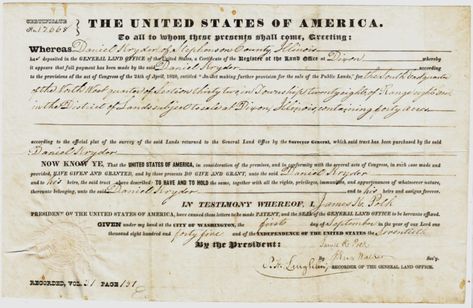 CERTIFICATE
No. 12668
THE UNITED STATES OF AMERICA.
To all to whom these presents shall come, Greeting:
Whereas Daniel Kryder of Stephenson County Illinois
has deposited in the GENERAL LAND OFFICE of the United States, a Certificate of the Register of the Land Office at Dixon whereby
it appears that full payment has been made by the said Daniel Kryder according
to the provisions of the act of Congress of the 24th of April, 1820, entitled "An Act making further provision for the sale of the Public Lands," for the South East quarter
of the North West quarter of Section thirty two in Township twenty eight of Range eight
in the District of Lands subject to sale at Dixon, Illinois, containing forty acres
according to the official plat of the survey of the said Lands returned to the General Land Office by the Surveyor General, which said tract has been purchased by the said
Daniel Kryder
NOW KNOW YE, That the UNITED STATES OF AMERICA, in consideration of the premises, and in conformity with the several acts of Congress, in such case made and
provided, HAVE GIVEN AND GRANTED, and by these presents DO GIVE AND GRANT, unto the said Daniel Kryder
and to his heirs, the said tract above described: TO HAVE AND TO HOLD the same, together with all the rights, privileges, immunities, and appurtenances of whatsoever nature,
thereunto belonging, unto the said Daniel Kryder and to his heirs and assigns forever.
IN TESTIMONY WHEREOF, I, James K. Polk
PRESIDENT OF THE UNITED STATES OF AMERICA, have caused these letters to be made PATENT, and the SEAL of the GENERAL LAND OFFICE to be hereunto affixed.
GIVEN under my hand at the CITY OF WASHINGTON, the first day of September in the year of our Lord
one thousand eight hundred and forty five and of the INDEPENDENCE OF THE UNITED STATES the seventieth
By the President: James K. Polk
By Walker
RECORDER OF THE GENERAL LAND OFFICE.
RECORDED, VOL. 31 PAGE 131